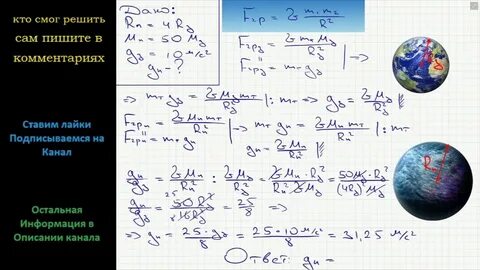 кто смог решить
сам пишите в
комментариях
Ставим лайки
Подписываемся на
Канал
Остальная
Информация в
Описании канала
Дано:
Rп = 4 Rз
Mп = 50 Mз
gз = 10 м/с²
gп - ?
Fгр = G m₁m₂ / R²
Fгрз = G mт Mз / Rз²
Fгрз = mт gз
=> mт gз = G Mз mт / Rз² | : mт => gз = G Mз / Rз²
Fгрп = G Mп mт / Rп²
Fгрп = mт gп
=> mт gп = G Mп mт / Rп² | : mт
gп = G Mп / Rп²
gп / gз = G Mп / Rп² : G Mз / Rз² = G Mп · Rз² / Rп² · G Mз = 50 Mз · Rз² / (4Rз)² Mз
gп / gз = 50 Rз² / 16 Rз² = 25 / 8 =>
=> gп = 25 · gз / 8 = 25 · 10 м/с² / 8 = 31,25 м/с²
Ответ: gп =